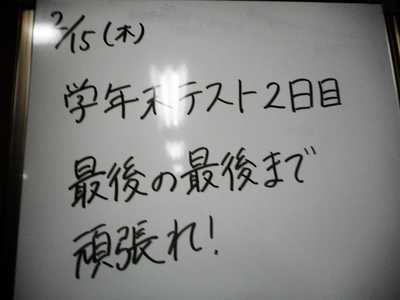 2/15(木)
学年末テスト2日目
最後の最後まで
頑張れ!